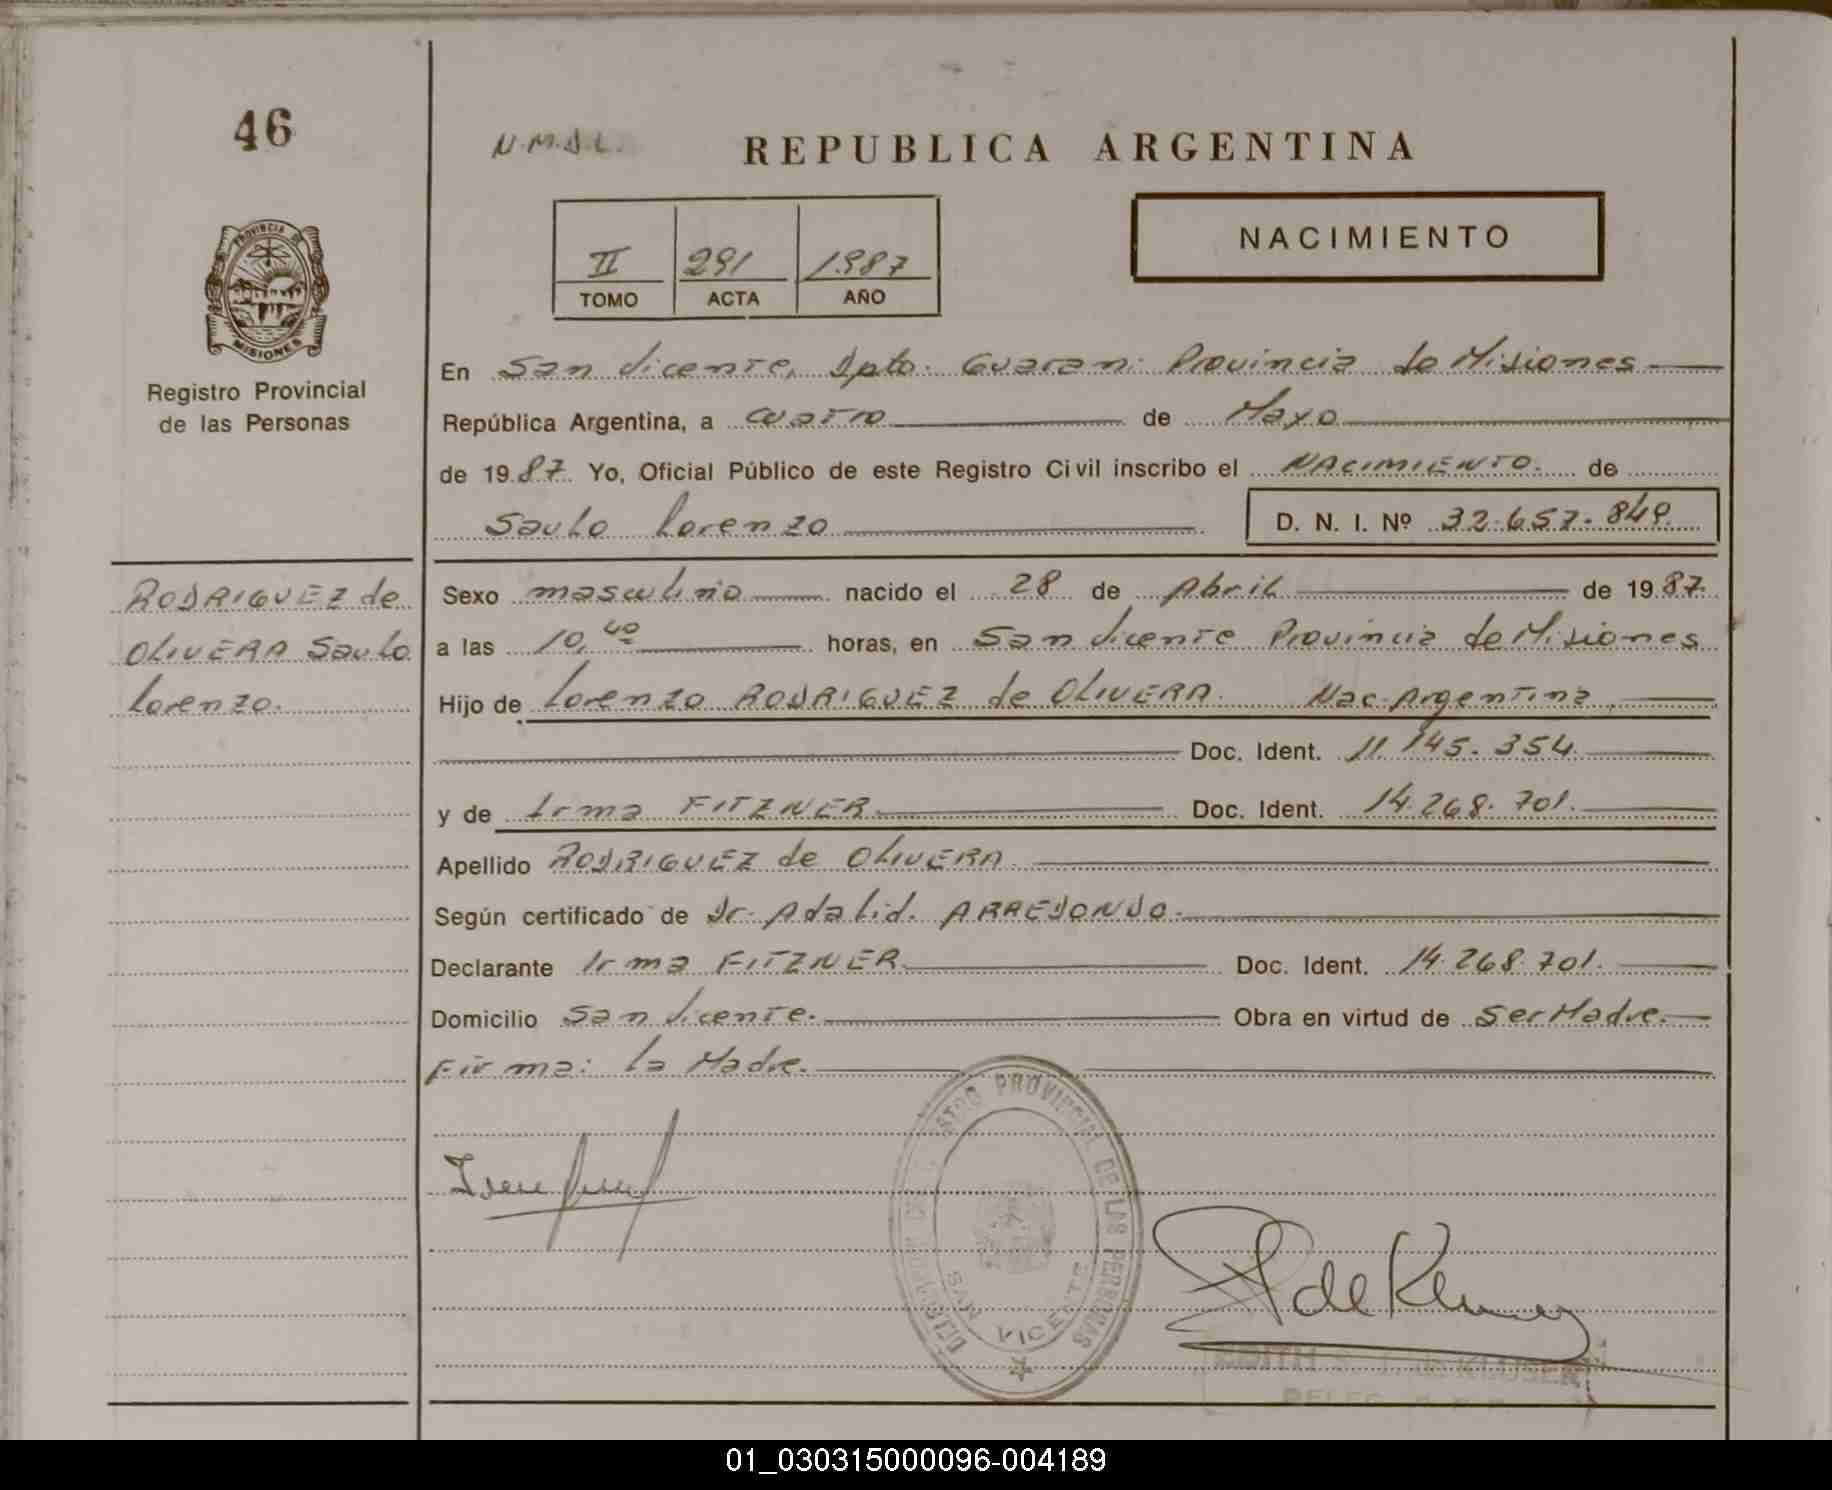 46
N.M.d.L.
REPUBLICA ARGENTINA
PROVINCIA DE
MISIONES
Registro Provincial
de las Personas
II 291 1987
TOMO ACTA AÑO
NACIMIENTO
En San Vicente, Dpto. Guarani Provincia de Misiones
República Argentina, a cuatro de Mayo
de 1987. Yo, Oficial Público de este Registro Civil inscribo el NACIMIENTO. de
Saulo Lorenzo D. N. I. Nº 32.657.849.
RODRIGUEZ de
OLIVERA Saulo
Lorenzo.
Sexo masculino nacido el 28 de Abril de 1987.
a las 10,40 horas, en San Vicente Provincia de Misiones
Hijo de Lorenzo RODRIGUEZ de OLIVERA. Nac. Argentina,
Doc. Ident. 11.145.354.
y de Irma FITZNER Doc. Ident. 14.268.701.
Apellido RODRIGUEZ de OLIVERA.
Según certificado de Dr. Adalid. ARREDONDO.
Declarante Irma FITZNER Doc. Ident. 14.268.701.
Domicilio San Vicente. Obra en virtud de ser Madre.
Firma: La Madre.
PROVINCIAL DE LAS PERSONAS
SAN VICENTE
EDITH de KLUSENER
01_030315000096-004189